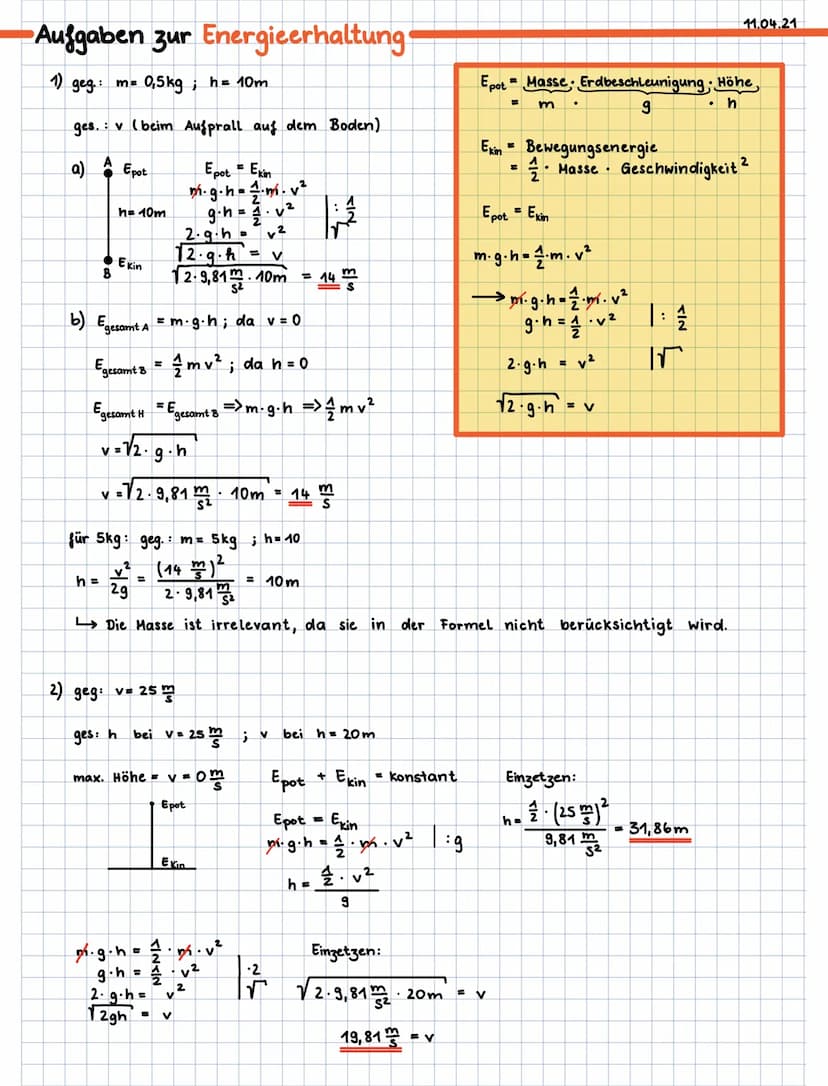 11.04.21
Aufgaben zur Energieerhaltung
1) geg.: m= 0,5kg ; h= 10m
ges.: v (beim Aufprall auf dem Boden)
a) A Epot
h= 10m
B Ekin
Epot = Ekin
m·g·h = 1/2·m·v²
g·h = 1/2·v² |: 1/2
2·g·h = v² |√
√2·g·h = v
√2·9,81 m/s² · 10m = 14 m/s
b) Egesamt A = m·g·h ; da v=0
Egesamt B = 1/2 mv² ; da h=0
Egesamt H = Egesamt B => m·g·h => 1/2 mv²
v = √2·g·h
v = √2·9,81 m/s² · 10m = 14 m/s
für 5kg: geg.: m= 5kg ; h=10
h = v²/2g = (14 m/s)²/2·9,81 m/s² = 10m
↳ Die Masse ist irrelevant, da sie in der Formel nicht berücksichtigt wird.
Epot = Masse · Erdbeschleunigung · Höhe
= m · g · h
Ekin = Bewegungsenergie
= 1/2 · Masse · Geschwindigkeit²
Epot = Ekin
m·g·h = 1/2·m·v²
→ m·g·h = 1/2·m·v²
g·h = 1/2·v² |: 1/2
2·g·h = v² |√
√2·g·h = v
2) geg: v= 25 m/s
ges: h bei v= 25 m/s ; v bei h= 20m
max. Höhe = v = 0 m/s
Epot
Ekin
Epot + Ekin = konstant
Epot = Ekin
m·g·h = 1/2·m·v² |:g
h = 1/2·v²/g
Einzetzen:
h = 1/2·(25 m/s)²/9,81 m/s² = 31,86m
m·g·h = 1/2·m·v²
g·h = 1/2·v² |·2
2·g·h = v² |√
√2gh = v
Einzetzen:
√2·9,81 m/s² · 20m = v
19,81 m/s = v